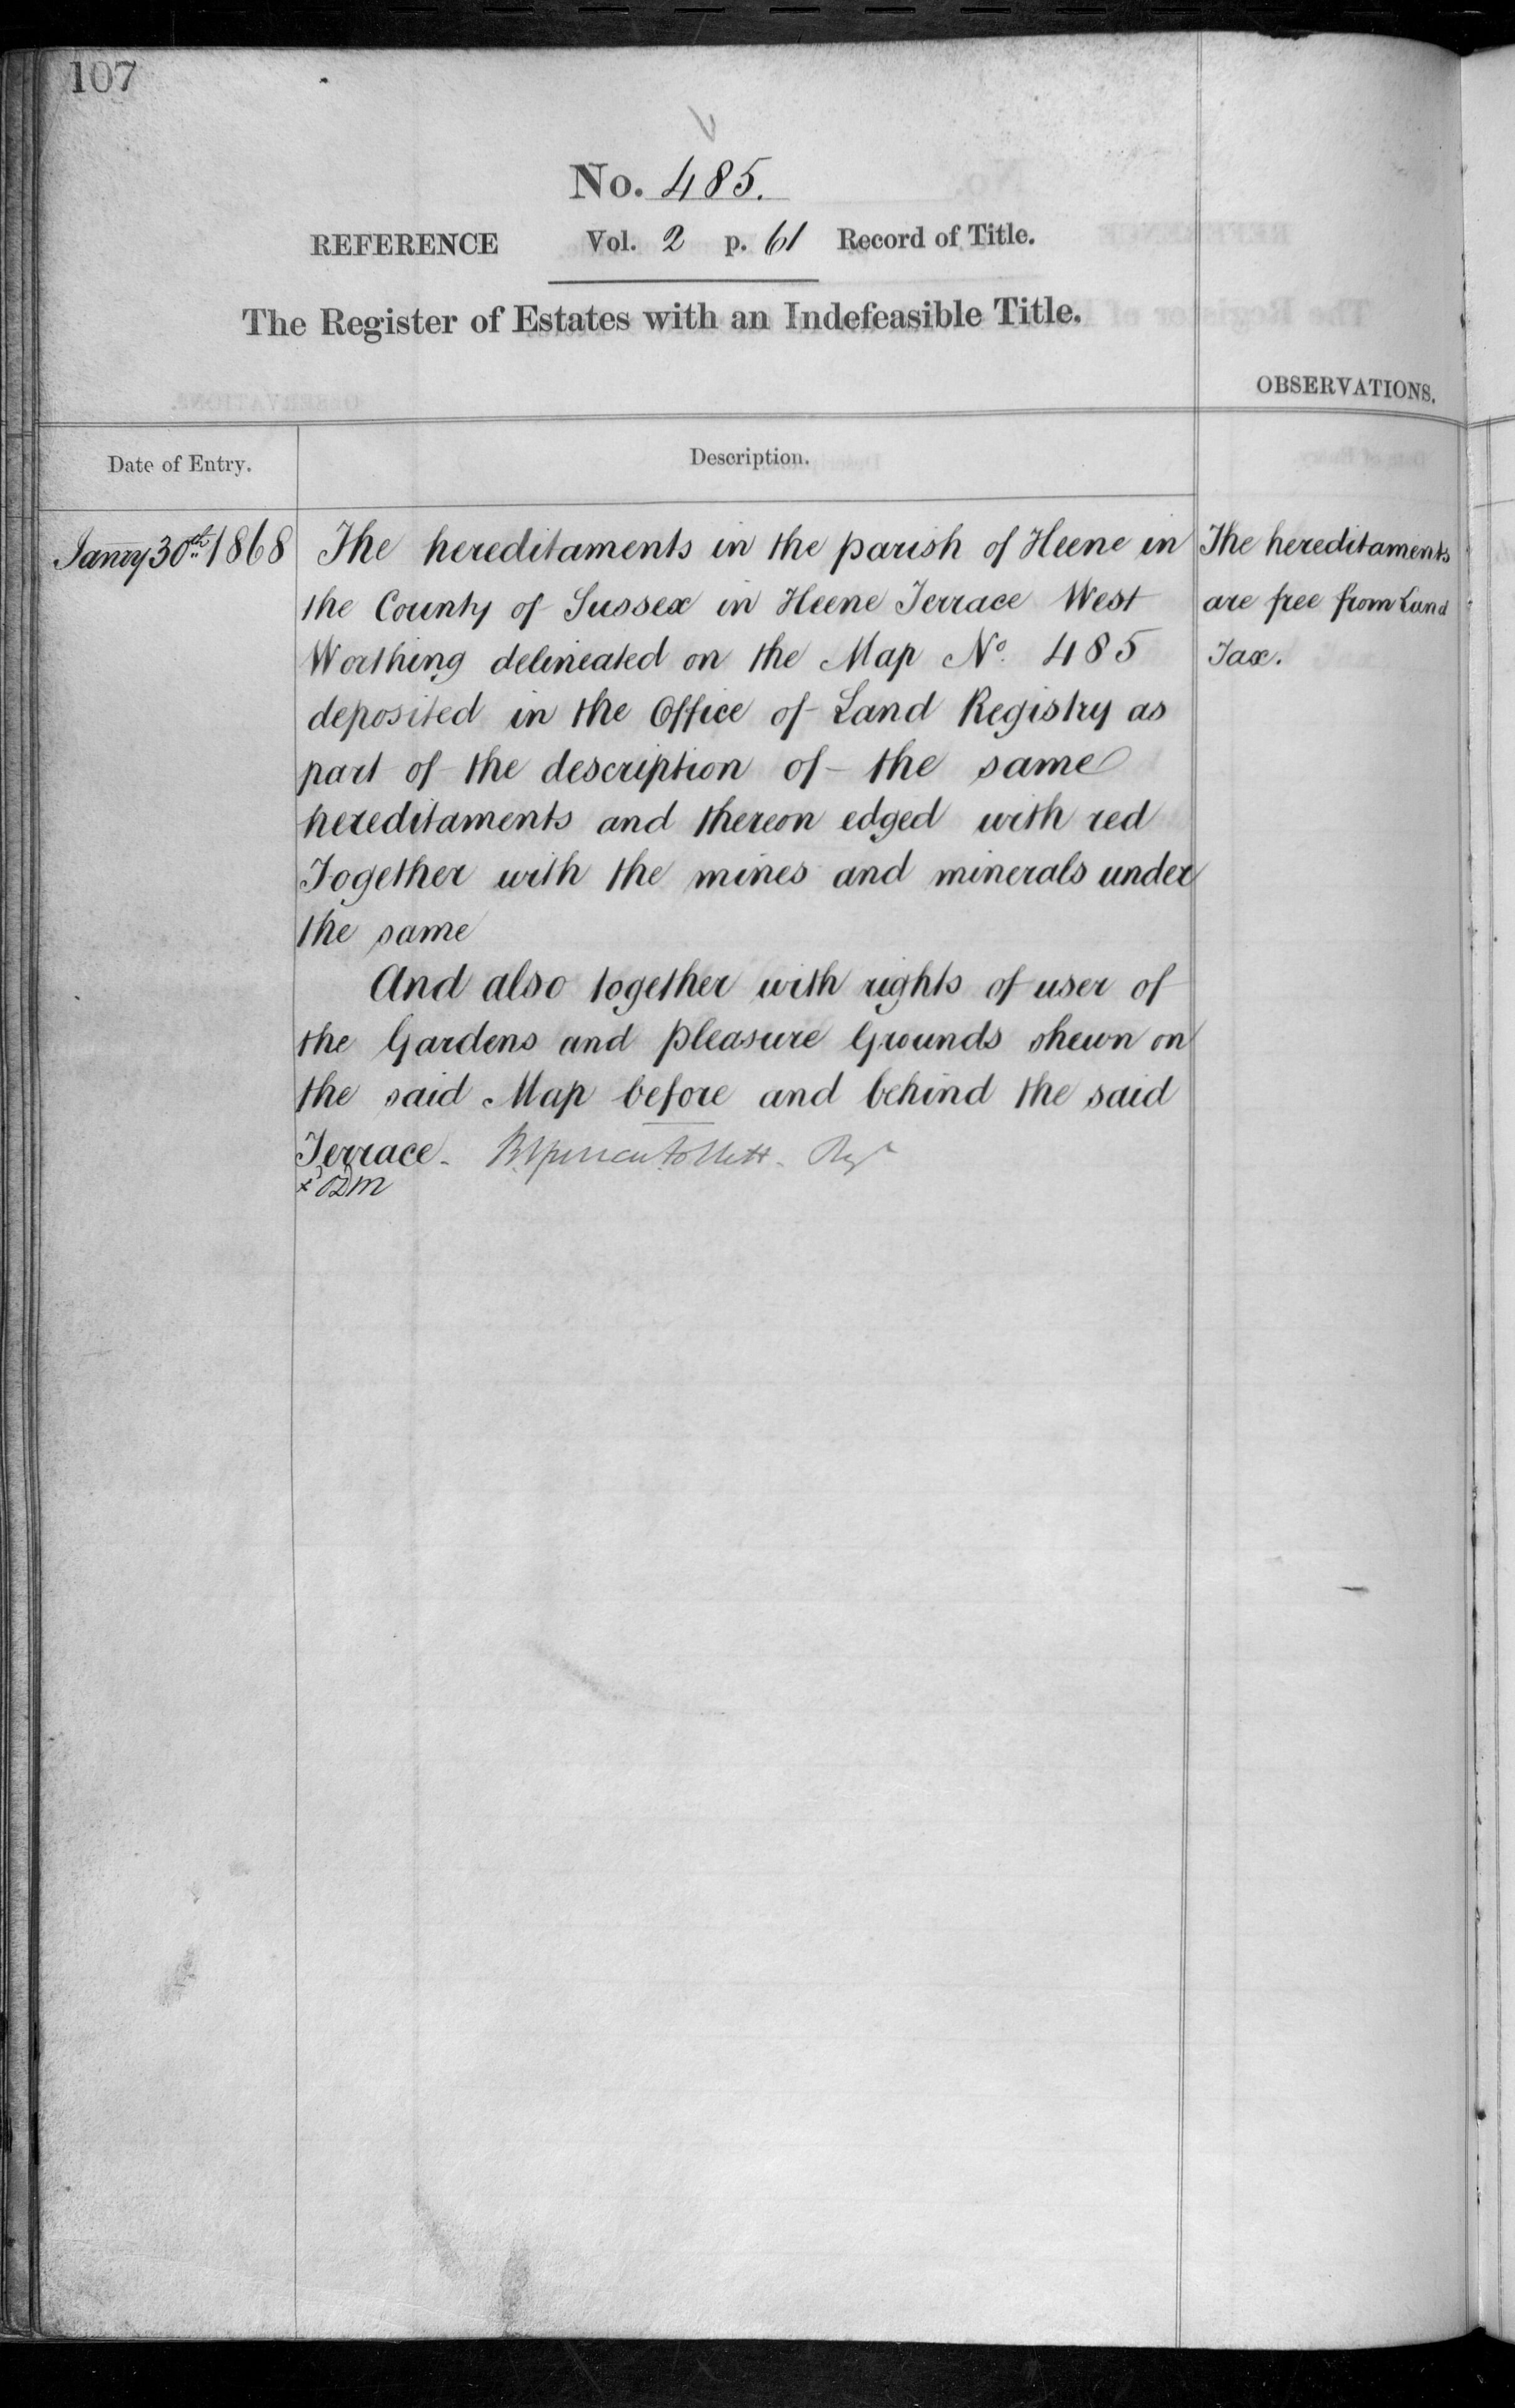 107
No. 485.
REFERENCE Vol. 2 p. 61 Record of Title.
The Register of Estates with an Indefeasible Title.
OBSERVATIONS.
Date of Entry.
Description.
Janry 30th 1868
The hereditaments in the parish of Heene in
the County of Sussex in Heene Terrace West
Worthing delineated on the Map No. 485
deposited in the Office of Land Registry as
part of the description of the same
hereditaments and thereon edged with red
Together with the mines and minerals under
the same
And also together with rights of user of
the Gardens and pleasure Grounds shewn on
the said Map before and behind the said
Terrace. Regr
The hereditaments
are free from Land
Tax.